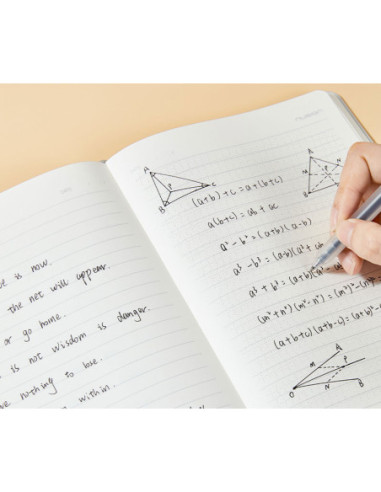 e is now.
the net will appear.
or go home.
is not wisdom is danger.
e nothing to lose.
within.
A
P
C
B
(a+b)+c=a+(b+c)
a(b+c)=ab+ac
a²-b²=(a+b)(a-b)
a³-b³=(a-b)(a²+ab
a³+b³=(a+b)(a²
(m²+n²)(m²-n²)=(m²)²-(n²
(a+b+c)(a+b-c)=(a+b)²-
A
N
P
B
A
M
P
O
N
B